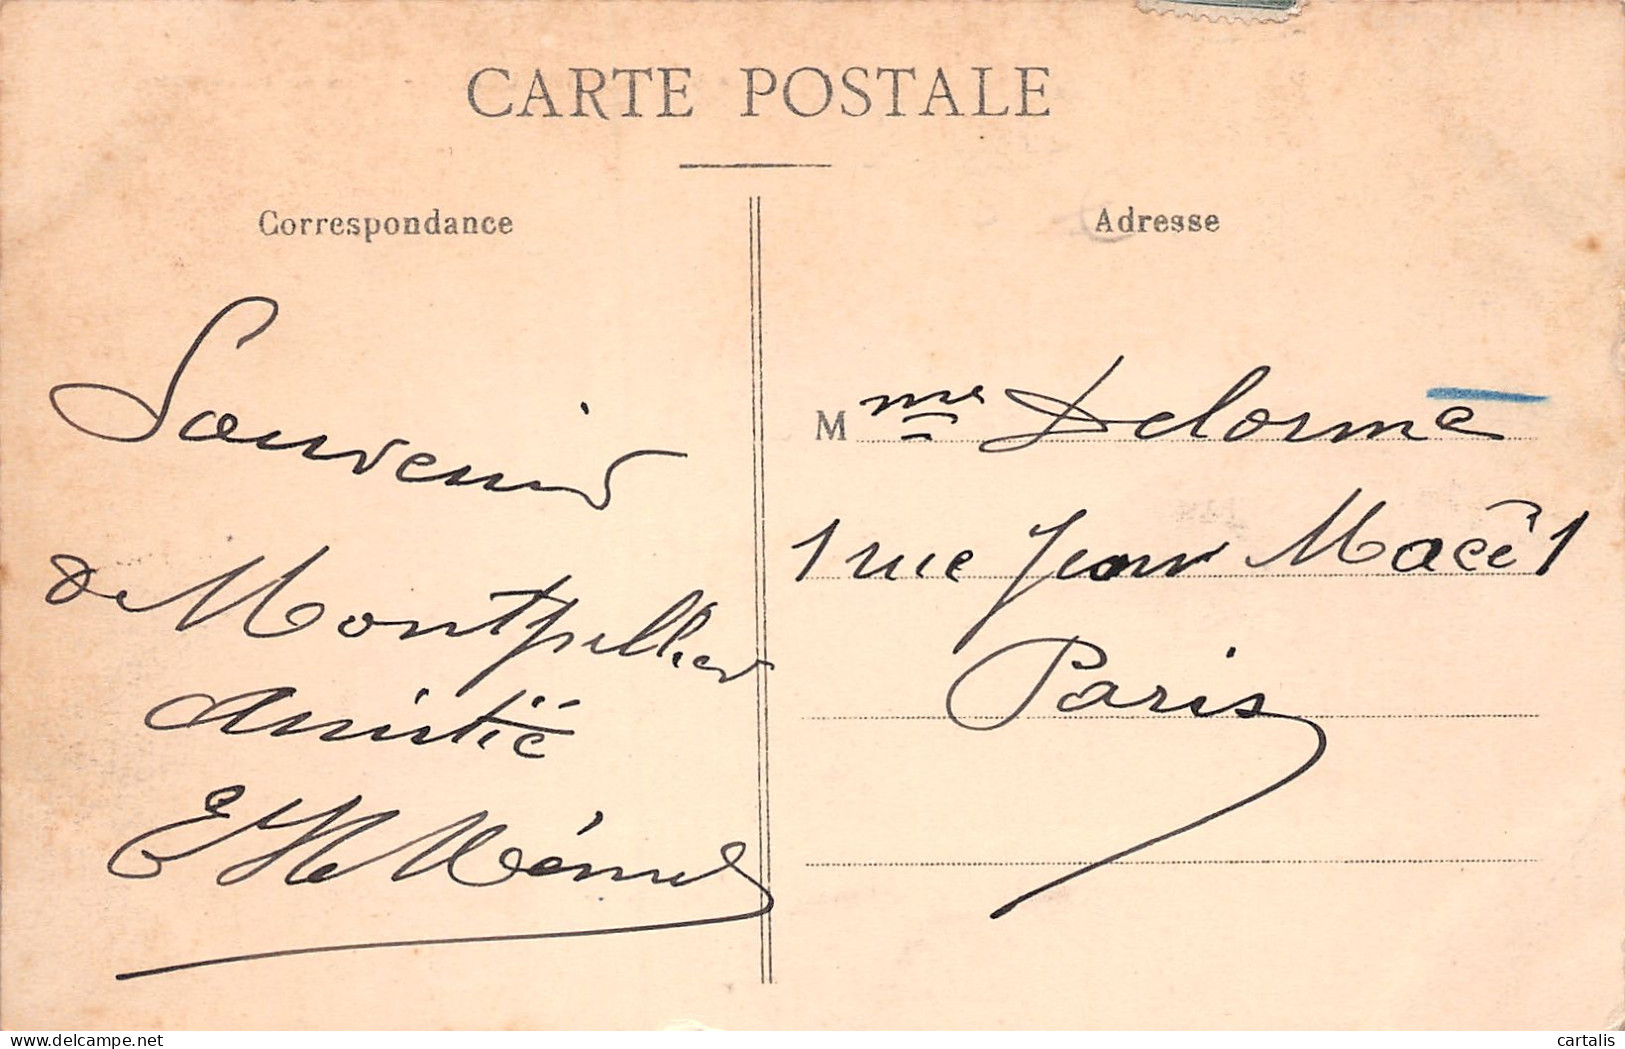 CARTE POSTALE
Correspondance
Adresse
Souvenir
de Montpellier
Amitié
M me Delorme
1 rue Jean Macé 1
Paris
delcampe.net
cartalis